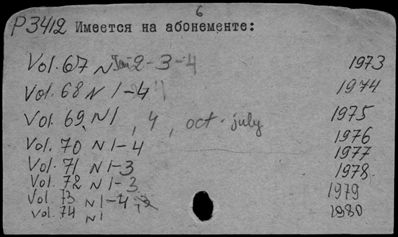 6
P3412 Имеется на абонементе:
Vol. 67 N 2-3-4 1973
Vol. 68 N 1-4 1974
Vol. 69, N1, 4, oct - july 1975
Vol. 70 N 1-4 1976
Vol. 71 N 1-3 1977
Vol. 72 N 1-3 1978
Vol. 73 N 1-4 1979
Vol. 74 N1 1980